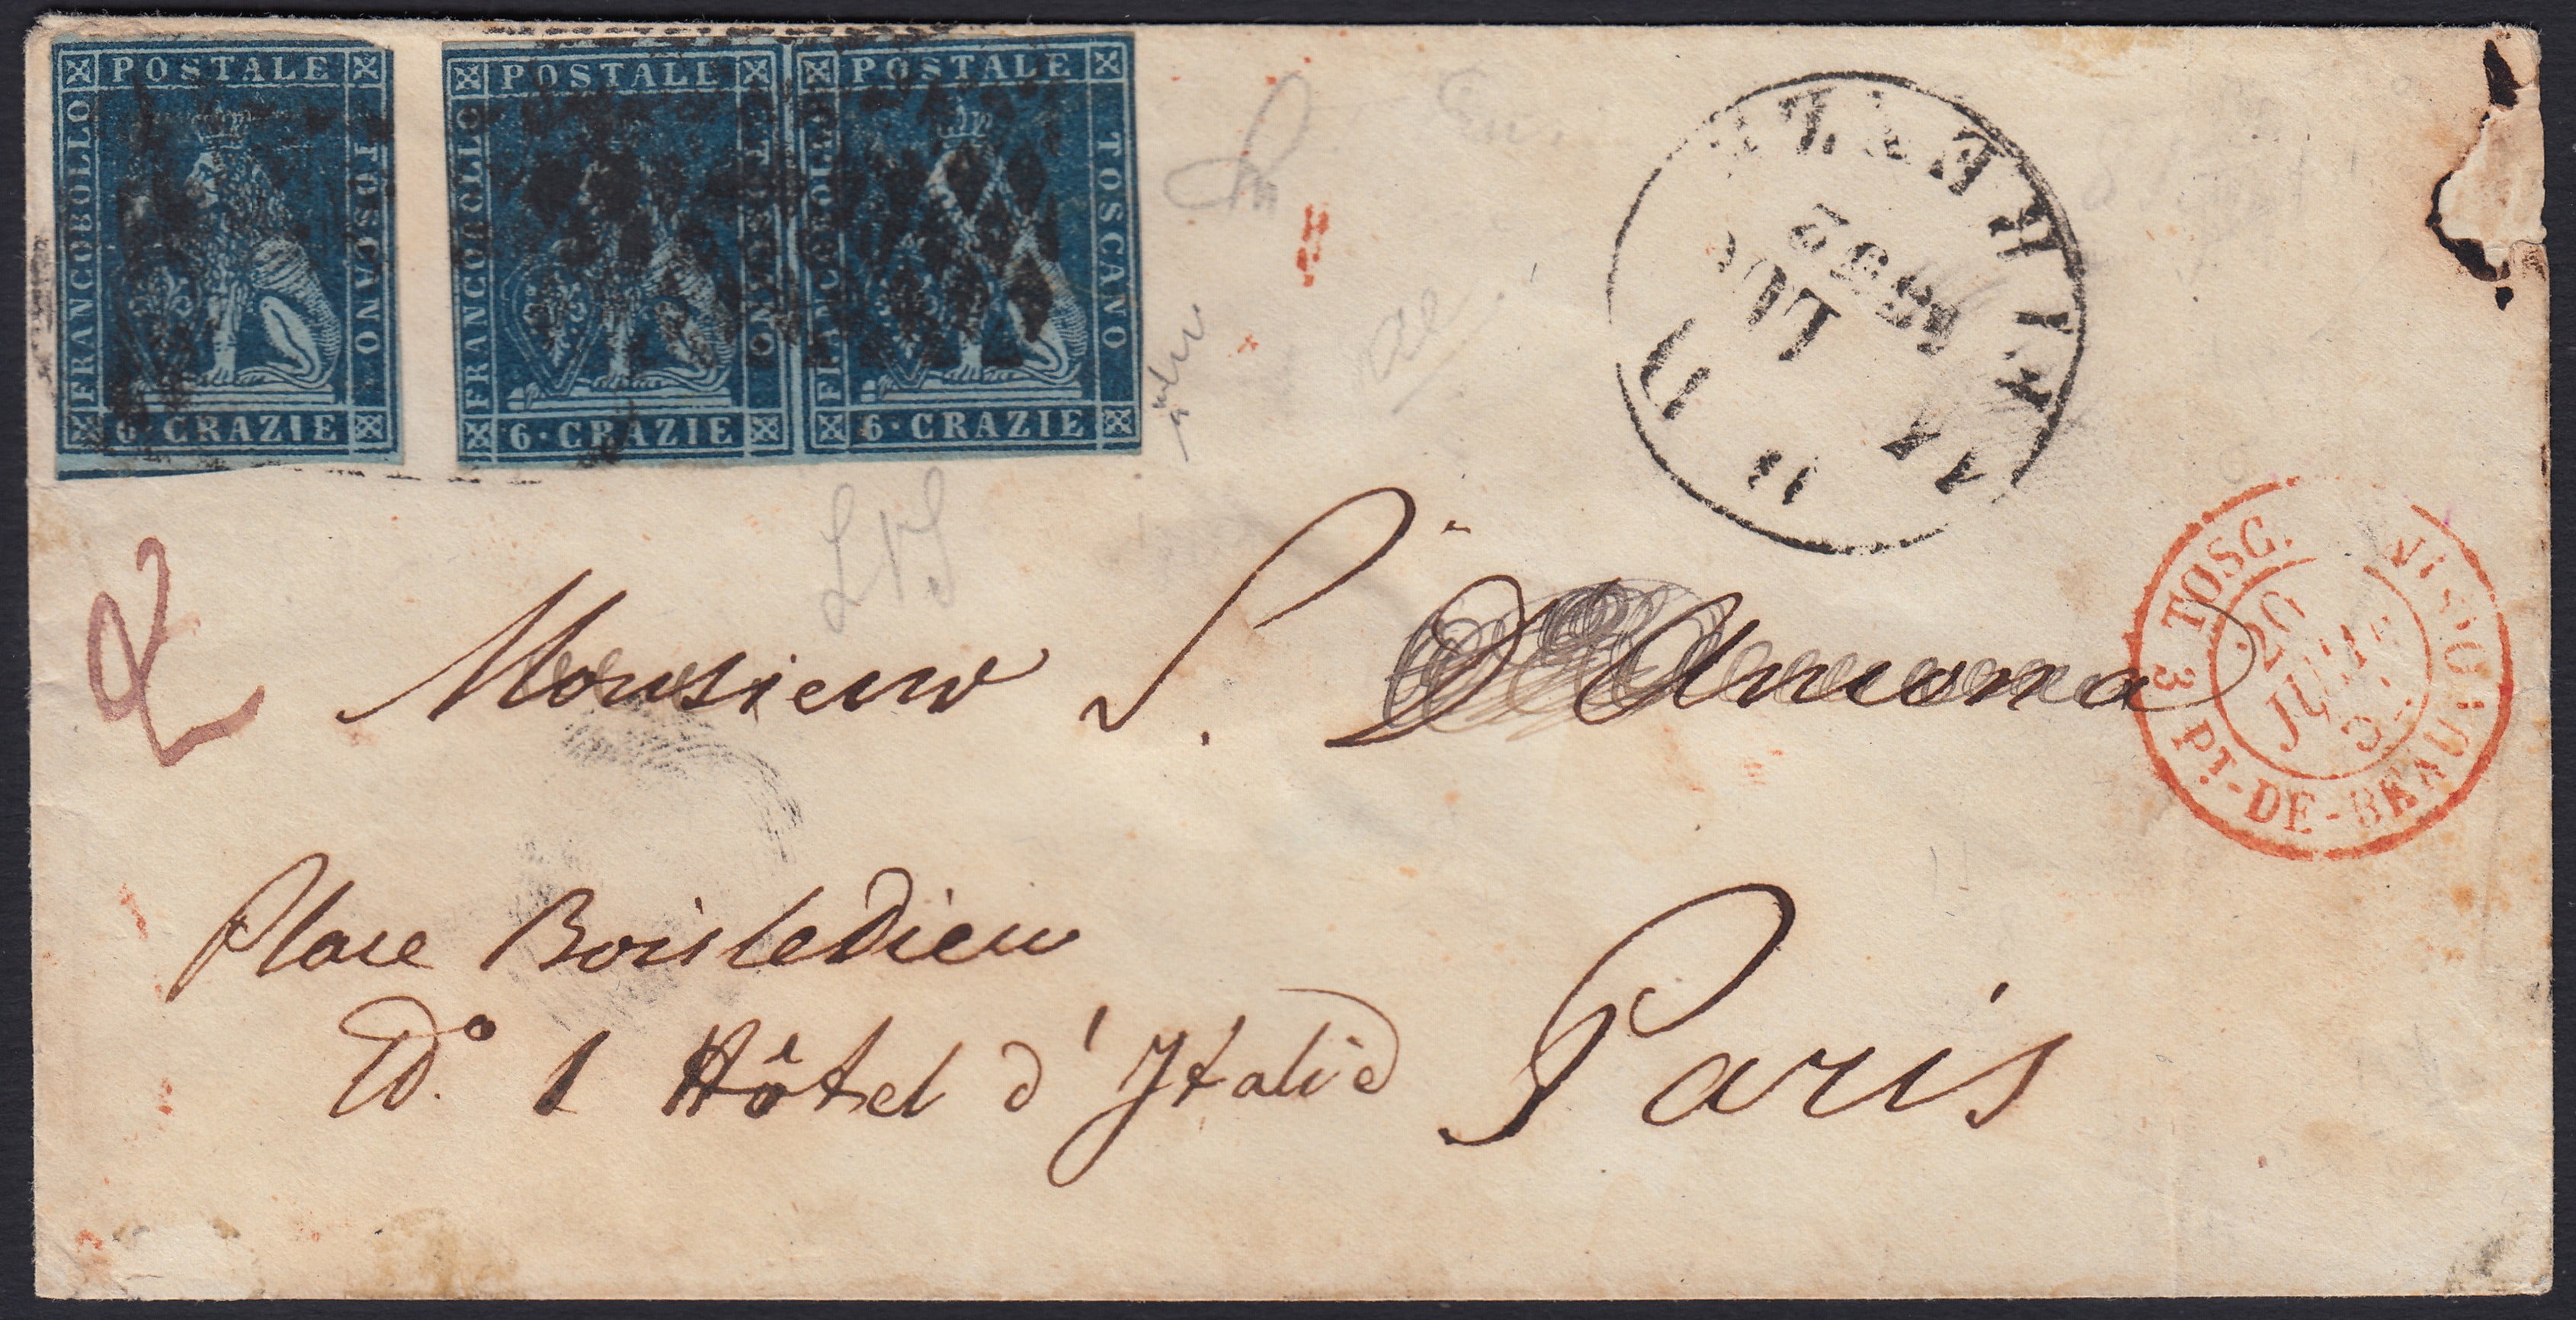 POSTALE
FRANCOBOLLO
TOSCANO
6·CRAZIE
POSTALE
FRANCOBOLLO
TOSCANO
6·CRAZIE
POSTALE
FRANCOBOLLO
TOSCANO
6·CRAZIE
FIRENZE
LUG
1852
TOSC.
3
20
PT.-DE-BEAUV
2
Monsieur P.
Place Boisledieu
1 Hôtel d'Italie Paris